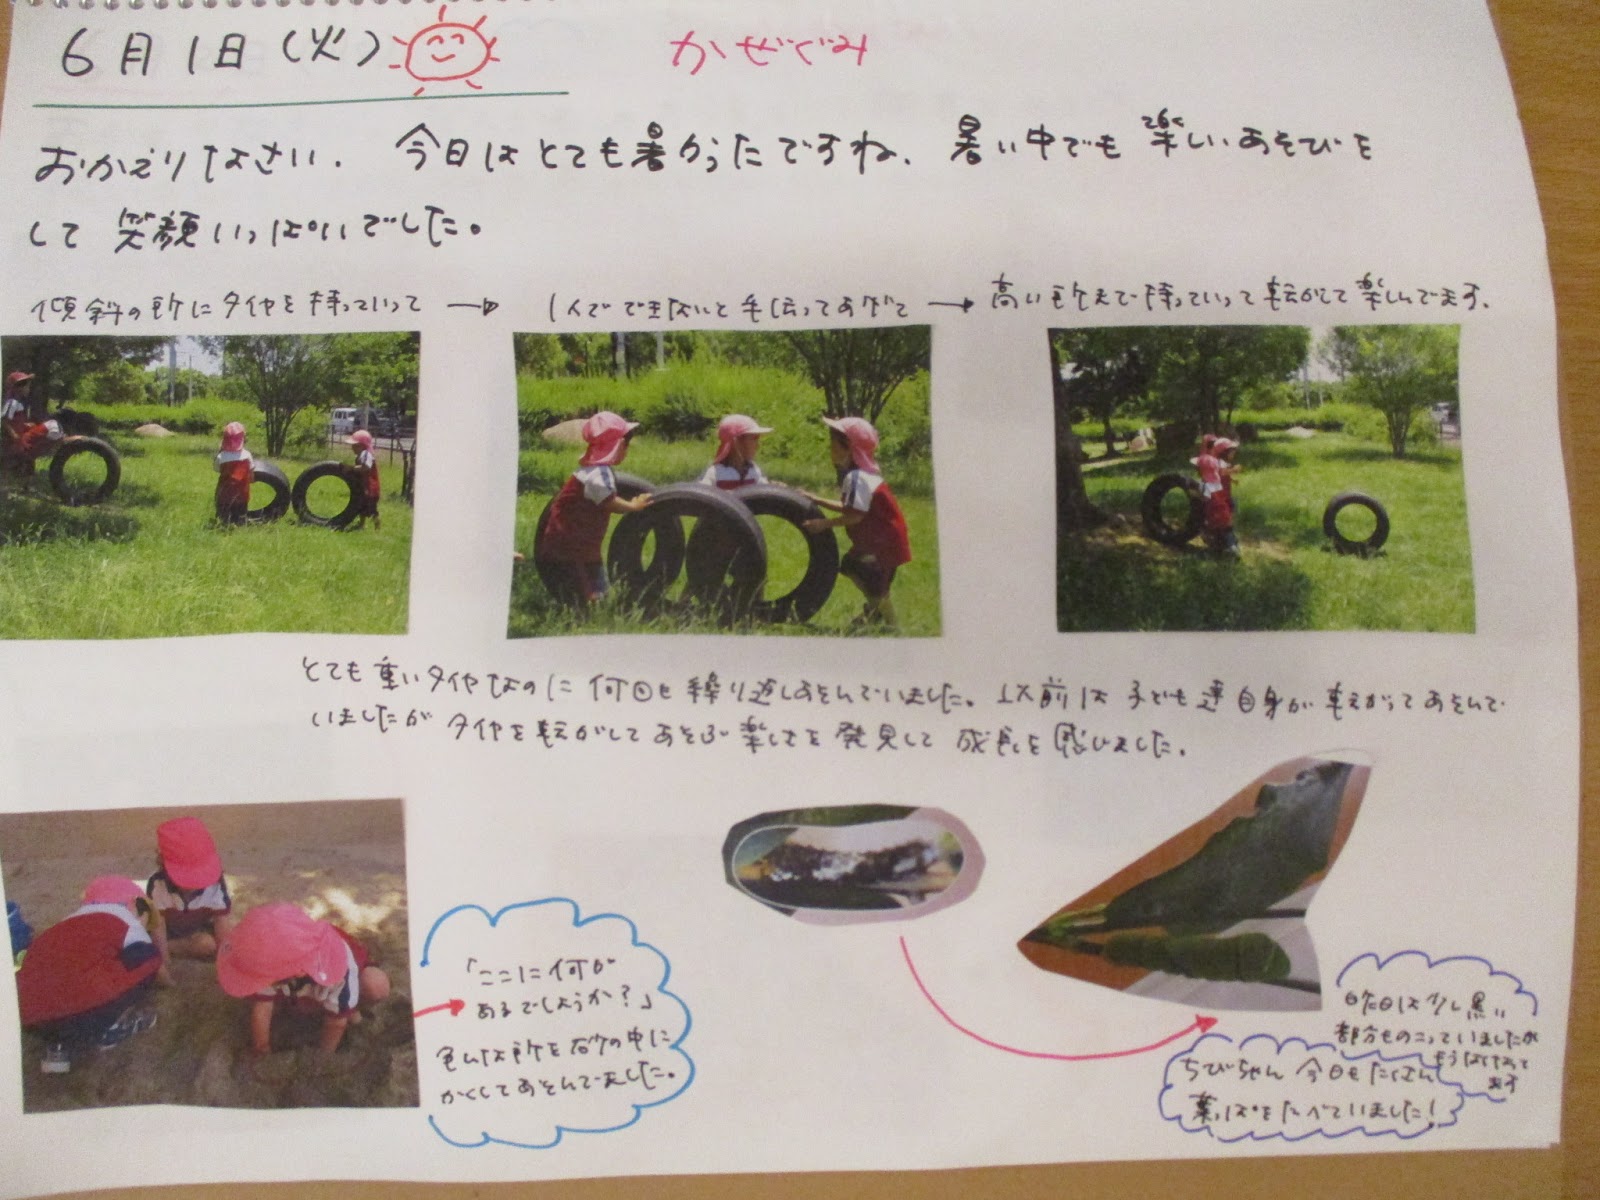 6月1日(火)
かぜぐみ
おかえりなさい. 今日はとても暑かったですね. 暑い中でも楽しいあそびを
して笑顔いっぱいでした。
傾斜の所にタイヤを持っていって → 1人でできないと手伝ってあげて → 高い所まで持っていって転がして楽しんでます.
とても重いタイヤなのに何回も繰り返しあそんでいました。以前は子ども達自身が転がってあそんで
いましたがタイヤを転がしてあそぶ楽しさを発見して成長を感じました.
「ここに何が
あるでしょうか?」
色んな所を砂の中に
かくしてあそんでました。
昨日は少し黒い
部分ものこっていましたが
もうはなって
ます
ちびちゃん 今日もたくさん
葉っぱをたべていました!